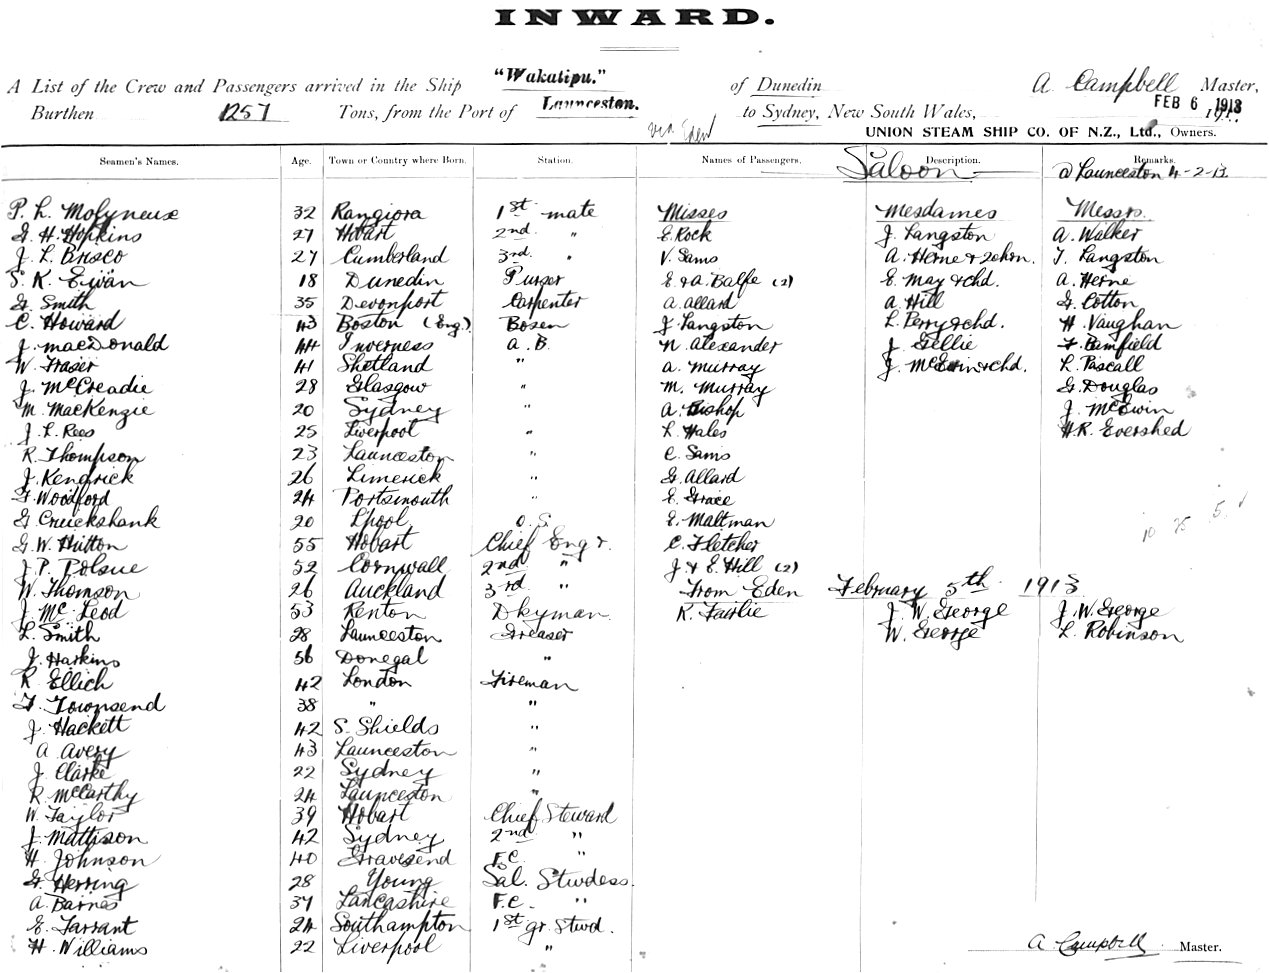 INWARD.
A List of the Crew and Passengers arrived in the Ship "Wakatipu." of Dunedin A Campbell Master,
Burthen 1257 Tons, from the Port of Launceston. via Eden to Sydney, New South Wales, FEB 6 1913 191
UNION STEAM SHIP CO. OF N.Z., Ltd., Owners.
Seamen's Names. Age. Town or Country where Born. Station. Names of Passengers. Saloon Description. Remarks.
@ Launceston 4-2-13
P. L. Molyneux 32 Rangiora 1st mate Misses Mesdames Messrs.
G. H. Hopkins 27 Hobart 2nd " E. Rock J. Langston A. Walker
J. L. Brisco 27 Cumberland 3rd " V. Sams A. Herne & 2chn. T. Langston
S. K. Ewan 18 Dunedin Purser E & A Balfe (2) E. May & chd. A. Herne
G. Smith 35 Devonport Carpenter A. Allard A. Hill G. Cotton
C. Howard 43 Boston (Eng.) Bosen J. Langston L. Perry & chd. H. Vaughan
J. MacDonald 44 Inverness A. B. N. Alexander J. Gellie F. Bamfield
W. Fraser 41 Shetland " A. Murray J. McEwin & chd. L. Pascall
J. McCreadie 28 Glasgow " M. Murray G. Douglas
M. MacKenzie 20 Sydney " A. Bishop J. McEwin
J. L. Rees 25 Liverpool " L. Hales H. R. Evershed
R. Thompson 23 Launceston " C. Sams
J. Kendrick 26 Limerick " G. Allard
F. Woodford 24 Portsmouth " E. Grace
G. Cruickshank 20 L'pool O. S. E. Maltman
G. W. Hutton 55 Hobart Chief Engr. C. Fletcher
J. P. Polsue 52 Cornwall 2nd " J & E. Hill (2)
W. Thomson 26 Auckland 3rd " From Eden February 5th 1913
J. McLeod 53 Renton Dkyman K. Fairlie J. W. George J. W. George
L. Smith 28 Launceston Greaser W. George L. Robinson
J. Harkins 56 Donegal "
R. Ellich 42 London Fireman
F. Townsend 38 " "
J. Hackett 42 S. Shields "
A. Avery 43 Launceston "
J. Clarke 22 Sydney "
R. McCarthy 24 Launceston "
W. Taylor 39 Hobart Chief Steward
J. Mattison 42 Sydney 2nd "
H. Johnson 40 Gravesend F.C. "
G. Herring 28 Young Sal. Stwdess.
A. Barnes 37 Lancashire F.C. "
E. Farrant 24 Southampton 1st gr. Stwd.
H. Williams 22 Liverpool "
A. Campbell Master.